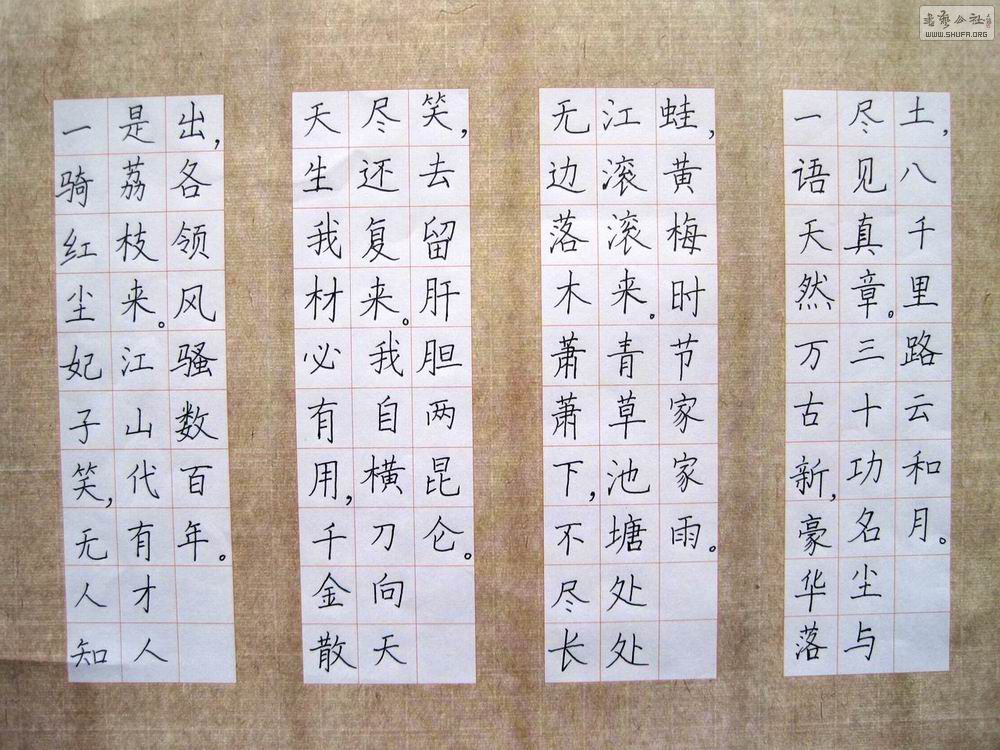 一骑红尘妃子笑，无人知
是荔枝来。江山代有才人
出，各领风骚数百年。
天生我材必有用，千金散
尽还复来。我自横刀向天
笑，去留肝胆两昆仑。
无边落木萧萧下，不尽长
江滚滚来。青草池塘处处
蛙，黄梅时节家家雨。
一语天然万古新，豪华落
尽见真章。三十功名尘与
土，八千里路云和月。
書藝公社
WWW.SHUFA.ORG